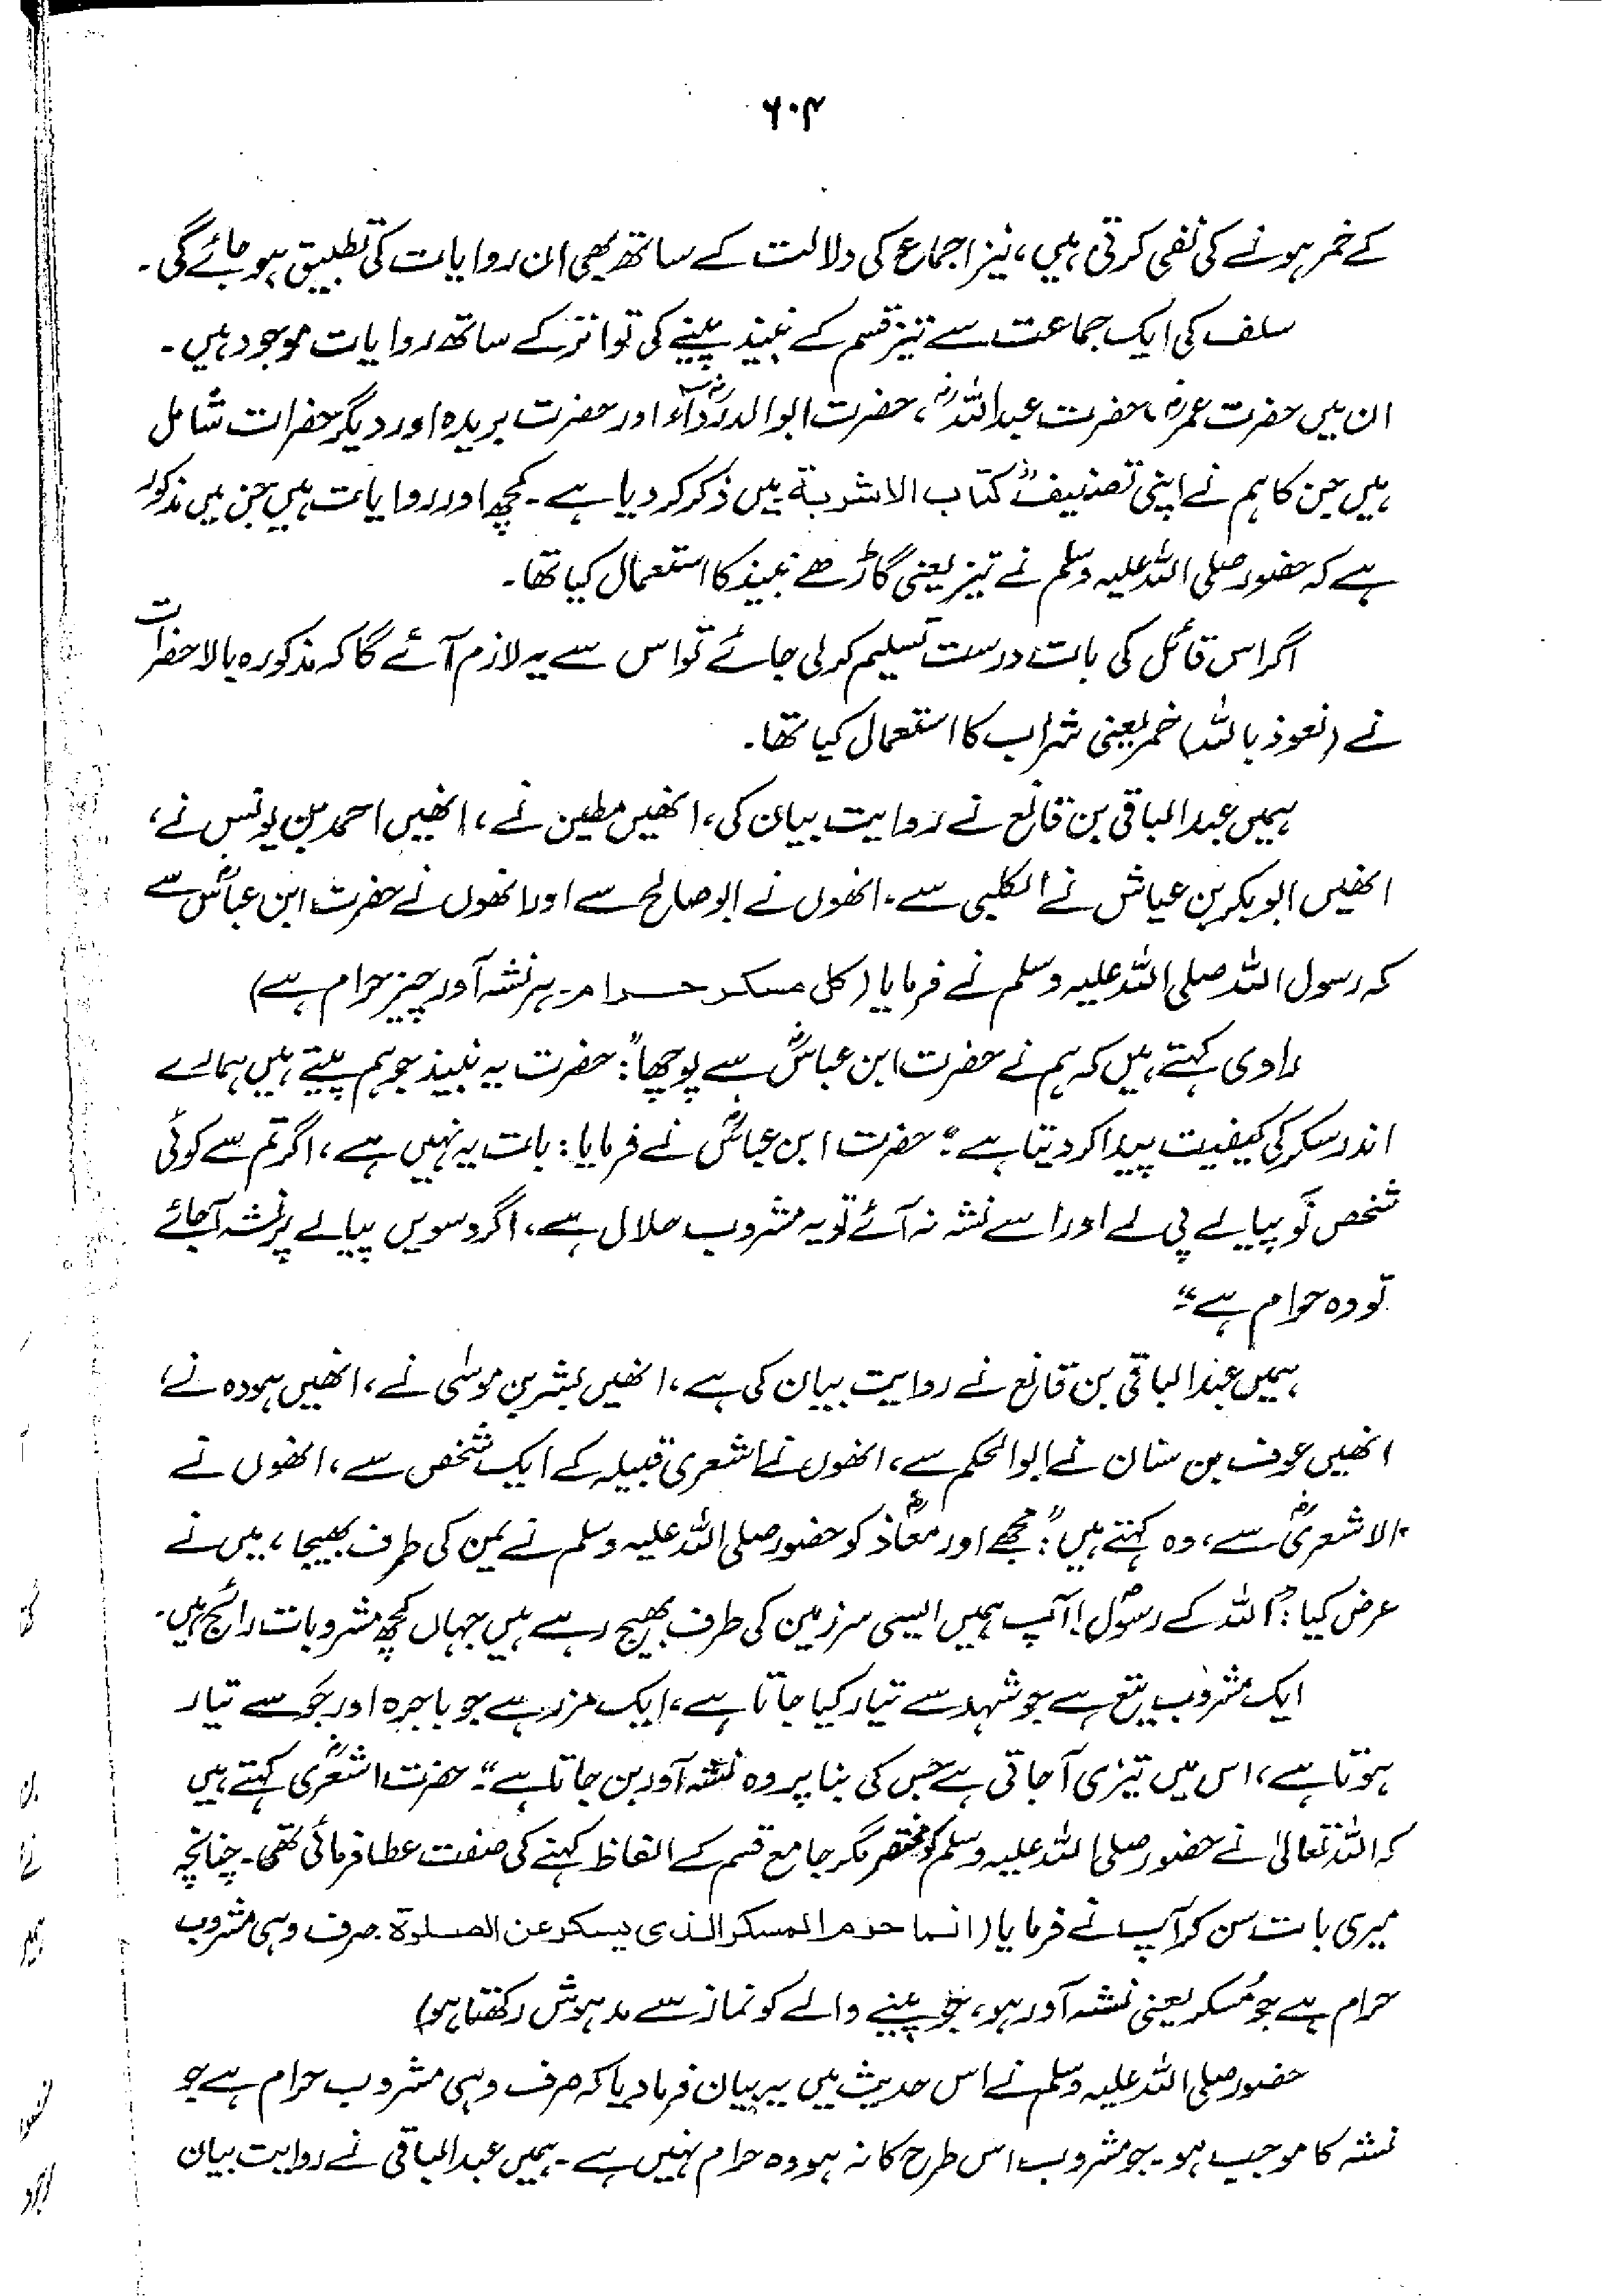 ۶۰۴
کے خمر ہونے کی نفی کرتی ہیں، نیز اجماع کی دلالت کے ساتھ بھی ان روایات کی تطبیق ہو جائے گی۔
سلف کی ایک جماعت سے تیز قسم کے نبیذ پینے کی تواتر کے ساتھ روایات موجود ہیں۔
ان میں حضرت عمرؓ، حضرت عبداللہؓ، حضرت ابوالدرداءؓ اور حضرت بریدہ اور دیگر حضرات شامل
ہیں جن کا ہم نے اپنی تصنیف "کتاب الاشربة میں ذکر کر دیا ہے۔ کچھ اور روایات ہیں جن میں مذکور
ہے کہ حضور صلی اللہ علیہ وسلم نے تیز یعنی گاڑھے نبیذ کا استعمال کیا تھا۔
اگر اس قائل کی بات درست تسلیم کر لی جائے تو اس سے یہ لازم آئے گا کہ مذکورہ بالا حضرات
نے (نعوذ باللہ) خمر یعنی شراب کا استعمال کیا تھا۔
ہمیں عبدالباقی بن قانع نے روایت بیان کی، انھیں مطین نے، انھیں احمد بن یونس نے،
انھیں ابوبکر بن عیاش نے الکلبی سے، انھوں نے ابو صالح سے اور انھوں نے حضرت ابن عباسؓ سے
کہ رسول اللہ صلی اللہ علیہ وسلم نے فرمایا (کل مسکر حرام۔ ہر نشہ آور چیز حرام ہے)
راوی کہتے ہیں کہ ہم نے حضرت ابن عباسؓ سے پوچھا: "حضرت یہ نبیذ جو ہم پیتے ہیں ہمارے
اندر سکر کی کیفیت پیدا کر دیتا ہے"۔ حضرت ابن عباسؓ نے فرمایا: بات یہ نہیں ہے، اگر تم سے کوئی
شخص نو پیالے پی لے اور اسے نشہ نہ آئے تو یہ مشروب حلال ہے، اگر دسویں پیالے پر نشہ آجائے
تو وہ حرام ہے"۔
ہمیں عبدالباقی بن قانع نے روایت بیان کی ہے، انھیں بشر بن موسٰی نے، انھیں ہودہ نے،
انھیں عوف بن سنان نے ابوالحکم سے، انھوں نے اشعری قبیلہ کے ایک شخص سے، انھوں نے
الاشعریؓ سے، وہ کہتے ہیں: "مجھے اور معاذؓ کو حضور صلی اللہ علیہ وسلم نے یمن کی طرف بھیجا، میں نے
عرض کیا: "اللہ کے رسولؐ! آپ ہمیں ایسی سرزمین کی طرف بھیج رہے ہیں جہاں کچھ مشروبات رائج ہیں۔
ایک مشروب بتع ہے جو شہد سے تیار کیا جاتا ہے، ایک مزر ہے جو باجرہ اور جَو سے تیار
ہوتا ہے، اس میں تیزی آجاتی ہے جس کی بنا پر وہ نشہ آور بن جاتا ہے"۔ حضرت اشعریؓ کہتے ہیں
کہ اللہ تعالیٰ نے حضور صلی اللہ علیہ وسلم کو مختصر مگر جامع قسم کے الفاظ کہنے کی صفت عطا فرمائی تھی۔ چنانچہ
میری بات سن کر آپ نے فرمایا (انما حرم المسکر الذی یسکر عن الصلوة۔ صرف وہی مشروب
حرام ہے جو مُسکر یعنی نشہ آور ہو، جو پینے والے کو نماز سے مدہوش رکھتا ہو)
حضور صلی اللہ علیہ وسلم نے اس حدیث میں یہ بیان فرما دیا کہ صرف وہی مشروب حرام ہے جو
نشہ کا موجب ہو۔ جو مشروب اس طرح کا نہ ہو وہ حرام نہیں ہے۔ ہمیں عبدالباقی نے روایت بیان